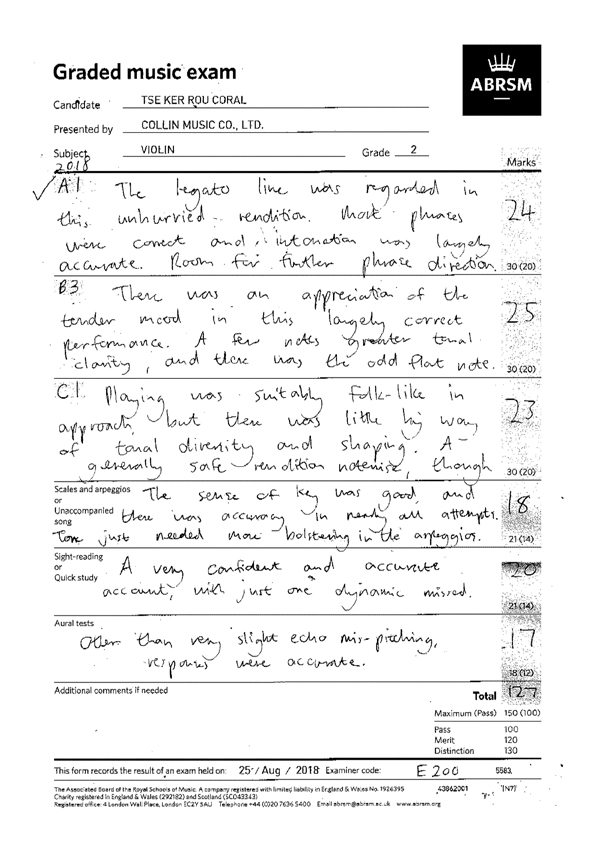 Graded music exam
ABRSM
Candidate TSE KER ROU CORAL
Presented by COLLIN MUSIC CO., LTD.
Subject VIOLIN Grade 2
2018
Marks
A1 The legato line was regarded in
this unhurried rendition. Most phrases
were correct and intonation was largely
accurate. Room for further phrase direction.
24
30 (20)
B3 There was an appreciation of the
tender mood in this largely correct
performance. A few notes greater tonal
clarity, and there was the odd flat note.
25
30 (20)
C1 Playing was suitably folk-like in
approach, but there was little by way
of tonal diversity and shaping. A
generally safe rendition notewise, though
23
30 (20)
Scales and arpeggios
or
Unaccompanied
song
The sense of key was good, and
there was accuracy in nearly all attempts.
Tone just needed more bolstering in the arpeggios.
18
21 (14)
Sight-reading
or
Quick study
A very confident and accurate
account, with just one dynamic missed.
20
21 (14)
Aural tests
Other than very slight echo mis-pitching,
responses were accurate.
17
18 (12)
Additional comments if needed
Total 127
Maximum (Pass) 150 (100)
Pass 100
Merit 120
Distinction 130
This form records the result of an exam held on: 25 / Aug / 2018 Examiner code: E200 5583
The Associated Board of the Royal Schools of Music. A company registered with limited liability in England & Wales No. 1926395
Charity registered in England & Wales (292182) and Scotland (SC043343)
Registered office: 4 London Wall Place, London EC2Y 5AU Telephone +44 (0)20 7636 5400 Email abrsm@abrsm.ac.uk www.abrsm.org
43862001